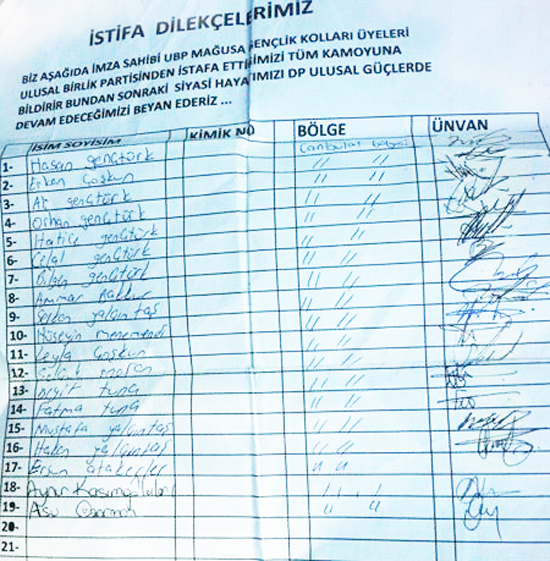 İSTİFA DİLEKÇELERİMİZ
BİZ AŞAĞIDA İMZA SAHİBİ UBP MAĞUSA GENÇLİK KOLLARI ÜYELERİ
ULUSAL BİRLİK PARTİSİNDEN İSTAFA ETTİĞİMİZİ TÜM KAMOYUNA
BİLDİRİR BUNDAN SONRAKİ SİYASİ HAYATIMIZI DP ULUSAL GÜÇLERDE
DEVAM EDECEĞİMİZİ BEYAN EDERİZ ...
İSİM SOYİSİM KİMİK NO BÖLGE ÜNVAN
1- Hasan gençtürk Canbulat bölgesi
2- Erken Coşkun " "
3- Ali gençtürk " "
4- Orhan gençtürk " "
5- Hatice gençtürk " "
6- Celal gençtürk " "
7- gençtürk " "
8- Ammar " "
9- Serkan yalçıntaş " "
10- Hüseyin menemenci " "
11- Leyla Coşkun " "
12- " "
13- tunç " "
14- Fatma tunç " "
15- Mustafa yalçıntaş " "
16- Hakan yalçıntaş " "
17- Ersin " "
18- " "
19- Asu " "
20-
21-